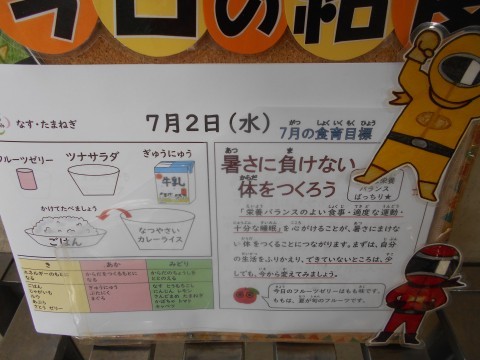 今日の給食
なす・たまねぎ
7月2日(水)
7月の食育目標
フルーツゼリー
ツナサラダ
ぎゅうにゅう
牛乳
かけてたべましょう
ごはん
なつやさい
カレーライス
暑さに負けない
体をつくろう
栄養
バランス
ばっちり★
「栄養バランスのよい食事・適度な運動・
十分な睡眠」を心がけることが、暑さにまけな
い体をつくることにつながります。まずは、自分
の生活をふりかえり、できていないところは、少
しでも、今から変えてみましょう。
き
あか
みどり
ごはん
じゃがいも
ぎゅうにゅう
ぶたにく
なす とうもろこし
今日のフルーツゼリーはもも味です。
ももは、夏が旬のフルーツです。